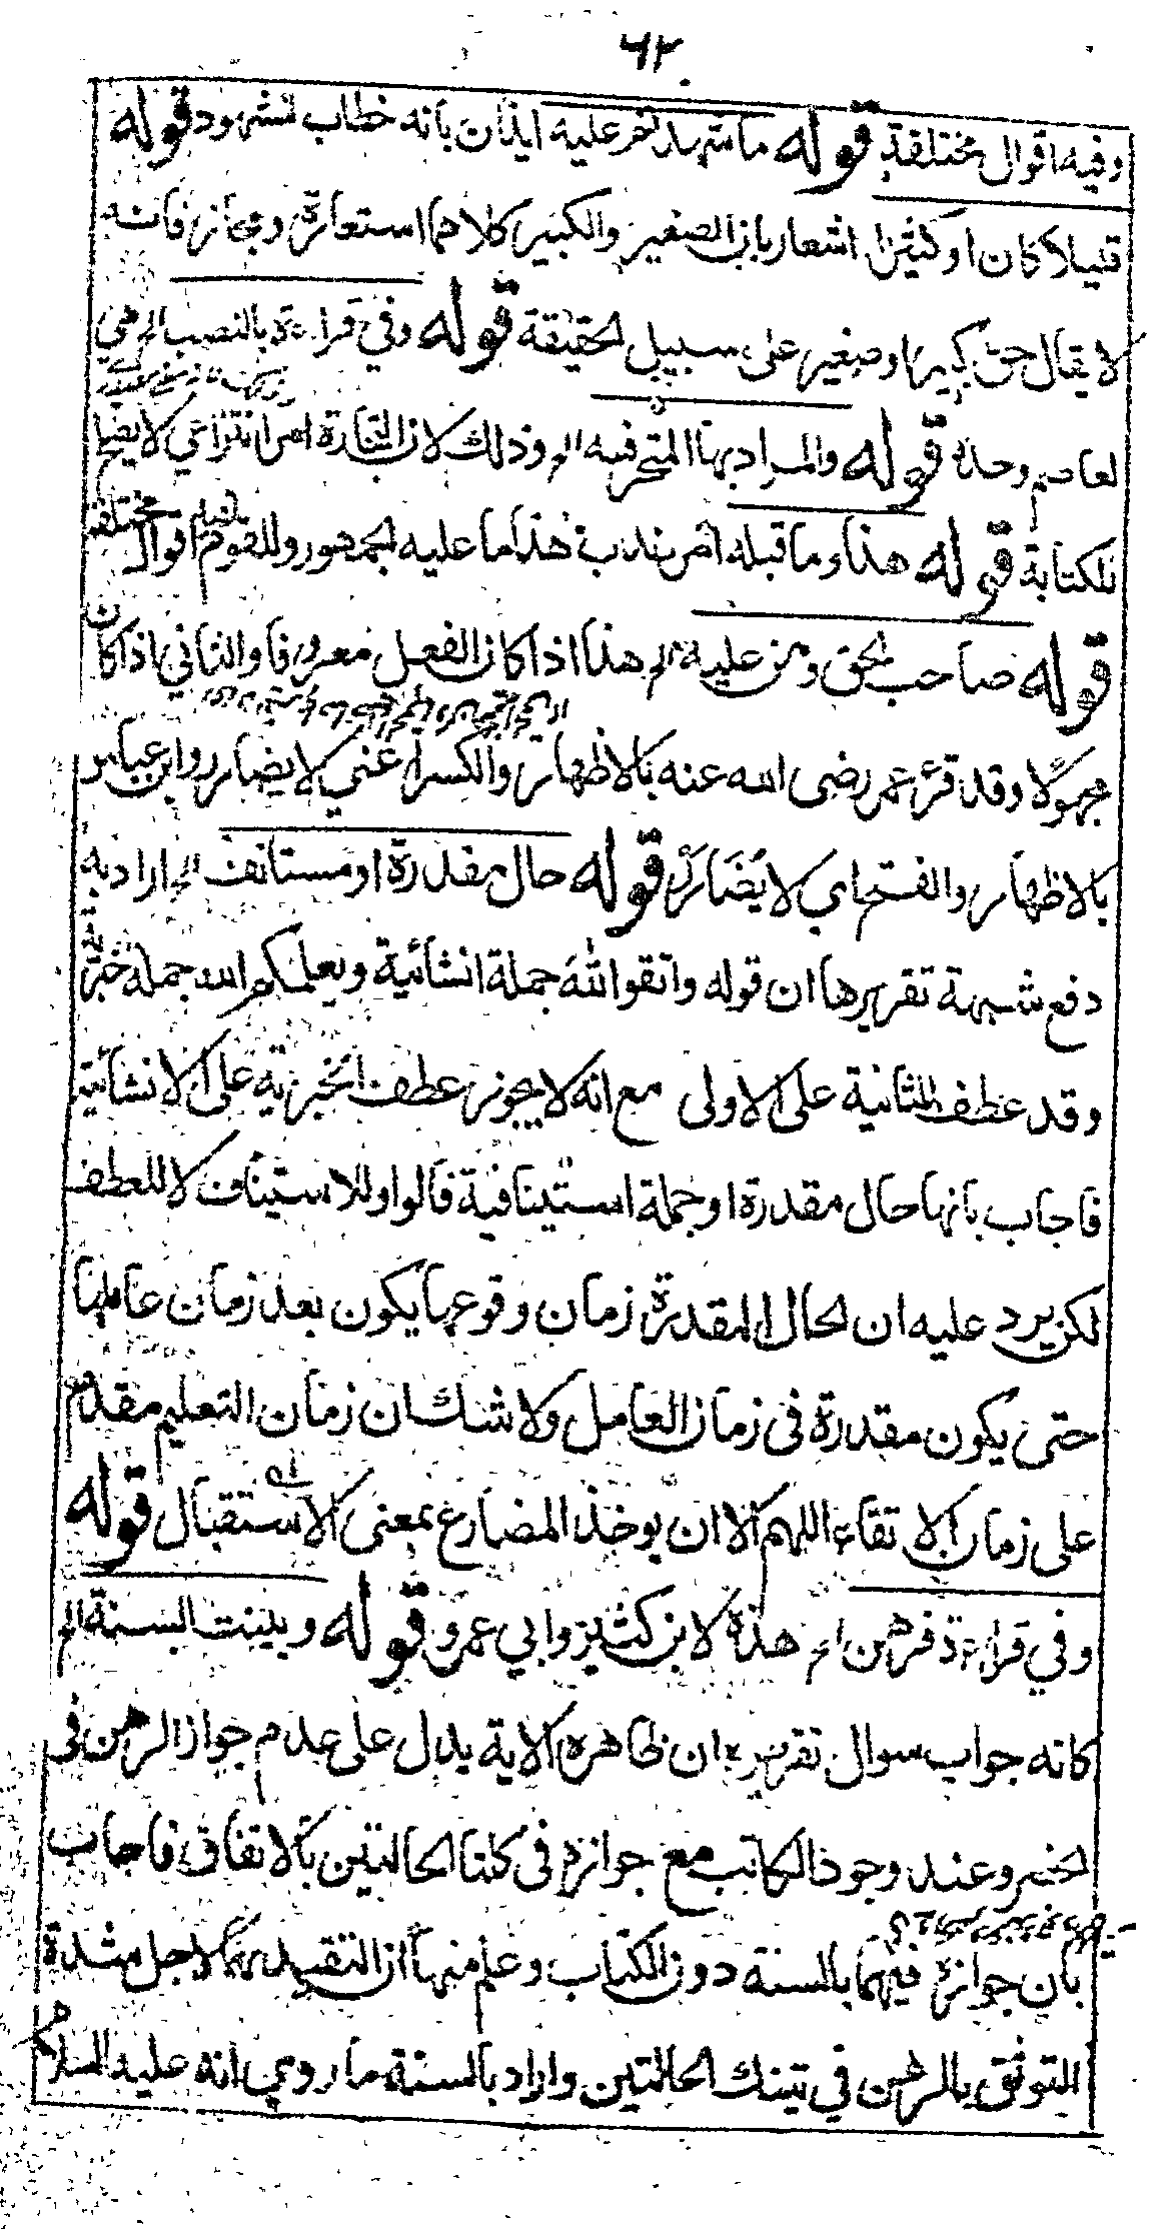 ٦٢
وفيه اقوال مختلفة قوله ما شهدتم عليه ايذان بانه خطاب للشهود قوله
قليلا كان او كثيرا اشعار بان الصغير والكبير كلاهما استعارة ومجاز فانه
لا يقال حق كبير او صغير على سبيل الحقيقة قوله وفي قراءة بالنصب الخ هي
لعاصم وحده قوله والمراد بها المتجر فيه الخ وذلك لان التجارة امر انتزاعي لا يصلح
للكتابة قوله هذا وما قبله امر ندب هذا ما عليه الجمهور وللقوم اقوال مختلفة
قوله صاحب الحق ومن عليه الخ هذا اذا كان الفعل معروفا والثاني اذا كان
مجهولا وقد قرء عمر رضى الله عنه بالاظهار والكسر اعني لا يضارر وابن عباس
بالاظهار والفتح اي لا يضارر قوله حال مقدرة او مستانف الخ اراد به
دفع شبهة تقريرها ان قوله واتقوا الله جملة انشائية ويعلمكم الله جملة خبرية
وقد عطف الثانية على الاولى مع انه لا يجوز عطف الخبرية على الانشائية
فاجاب بانها حال مقدرة او جملة استينافية فالواو للاستيناف لا للعطف
لكن يرد عليه ان الحال المقدرة زمان وقوعها يكون بعد زمان عاملها
حتى يكون مقدرة فى زمان العامل ولا شك ان زمان التعليم مقدم
على زمان الاتقاء اللهم الا ان يوخذ المضارع بمعنى الاستقبال قوله
وفي قراءة فرهن الخ هذه لابن كثير وابي عمرو قوله وبينت السنة الخ
كانه جواب سوال تقريره ان ظاهره الاية يدل على عدم جواز الرهن فى
الحضر وعند وجود الكاتب مع جوازه فى كلتا الحالتين بالاتفاق فاجاب
بان جوازه فيهما بالسنة دون الكتاب وعلم منها ان التقييد بهما لاجل شدة
التوثق بالرهن في تينك الحالتين واراد بالسنة ما روي انه عليه السلام